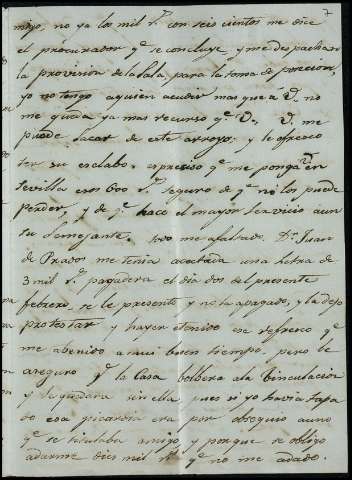 7
migo, no ya los mil r.s con seis cientos me dice
el procurador q.e se concluye, y me despachan
la provision de la sala, para la toma de posecion,
yo no tengo a quien acudir mas que a V. no
me queda ya mas recurso q.e V., V. me
puede sacar de este arroyo, y le ofresco
ser su esclabo. es presiso q.e me ponga V. en
Sevilla esos 600 r.s seguro de q.e no los puede
Perder, y de q.e hace el mayor servicio a un
su semejante. todo me a faltado. D.n Juan
de Prados me tenia aceptada una letra de
3 mil r.s pagadera el dia dos del presente
febrero, se le presentó y no la a pagado, y la dejó
protestar y hayer e tenido ese refresco q.e
me a benido a mui buen tiempo, pero le
aseguro q.e la Casa bolbera a la Vinculacion
y se quedara sin ella pues si yo havia tapa
do esa picardia era por obsequio a uno
q.e se titulaba amigo, y porque se obligó
a darme dies mil r.s q.e no me a dado.